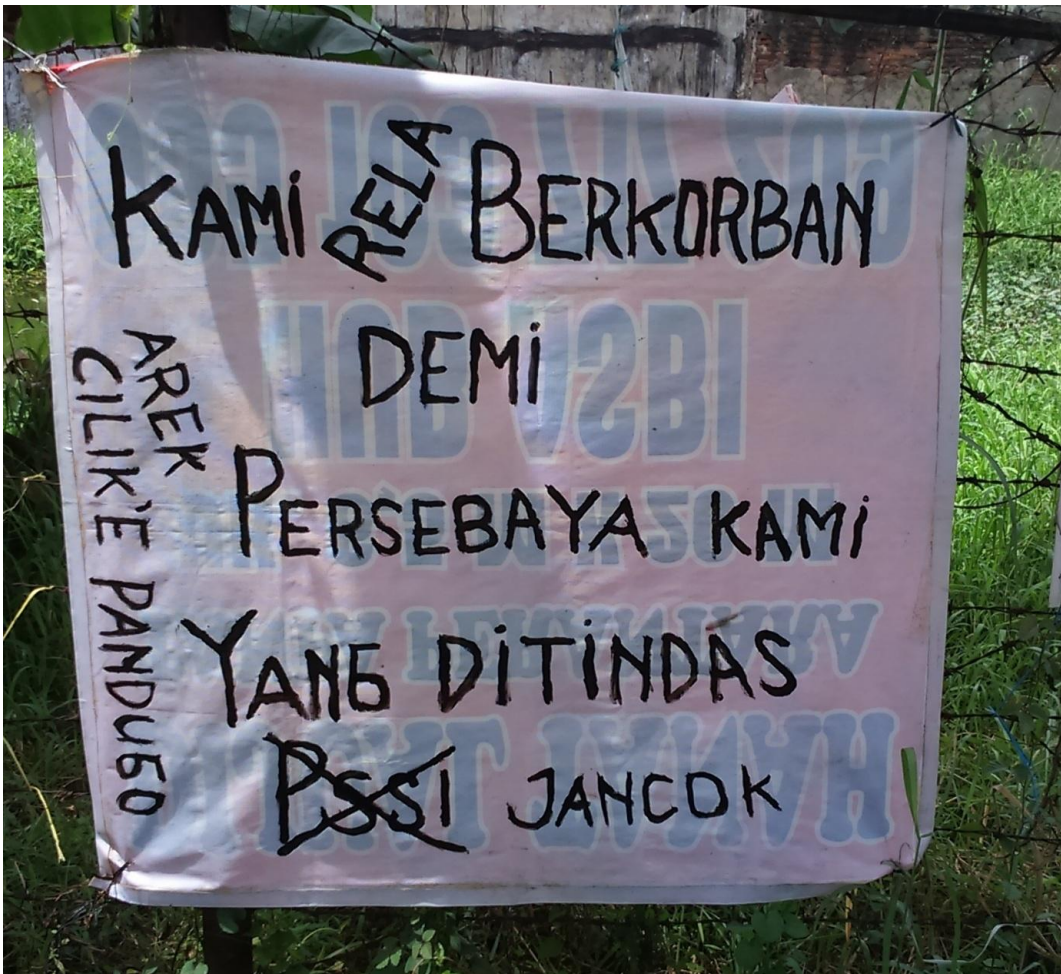 KAMi RELA BERKORBAN
DEMi
PERSEBAYA KAMi
YANG DiTiNDAS
PSSI JANCOK
AREK
CILIK'E PANDUGO